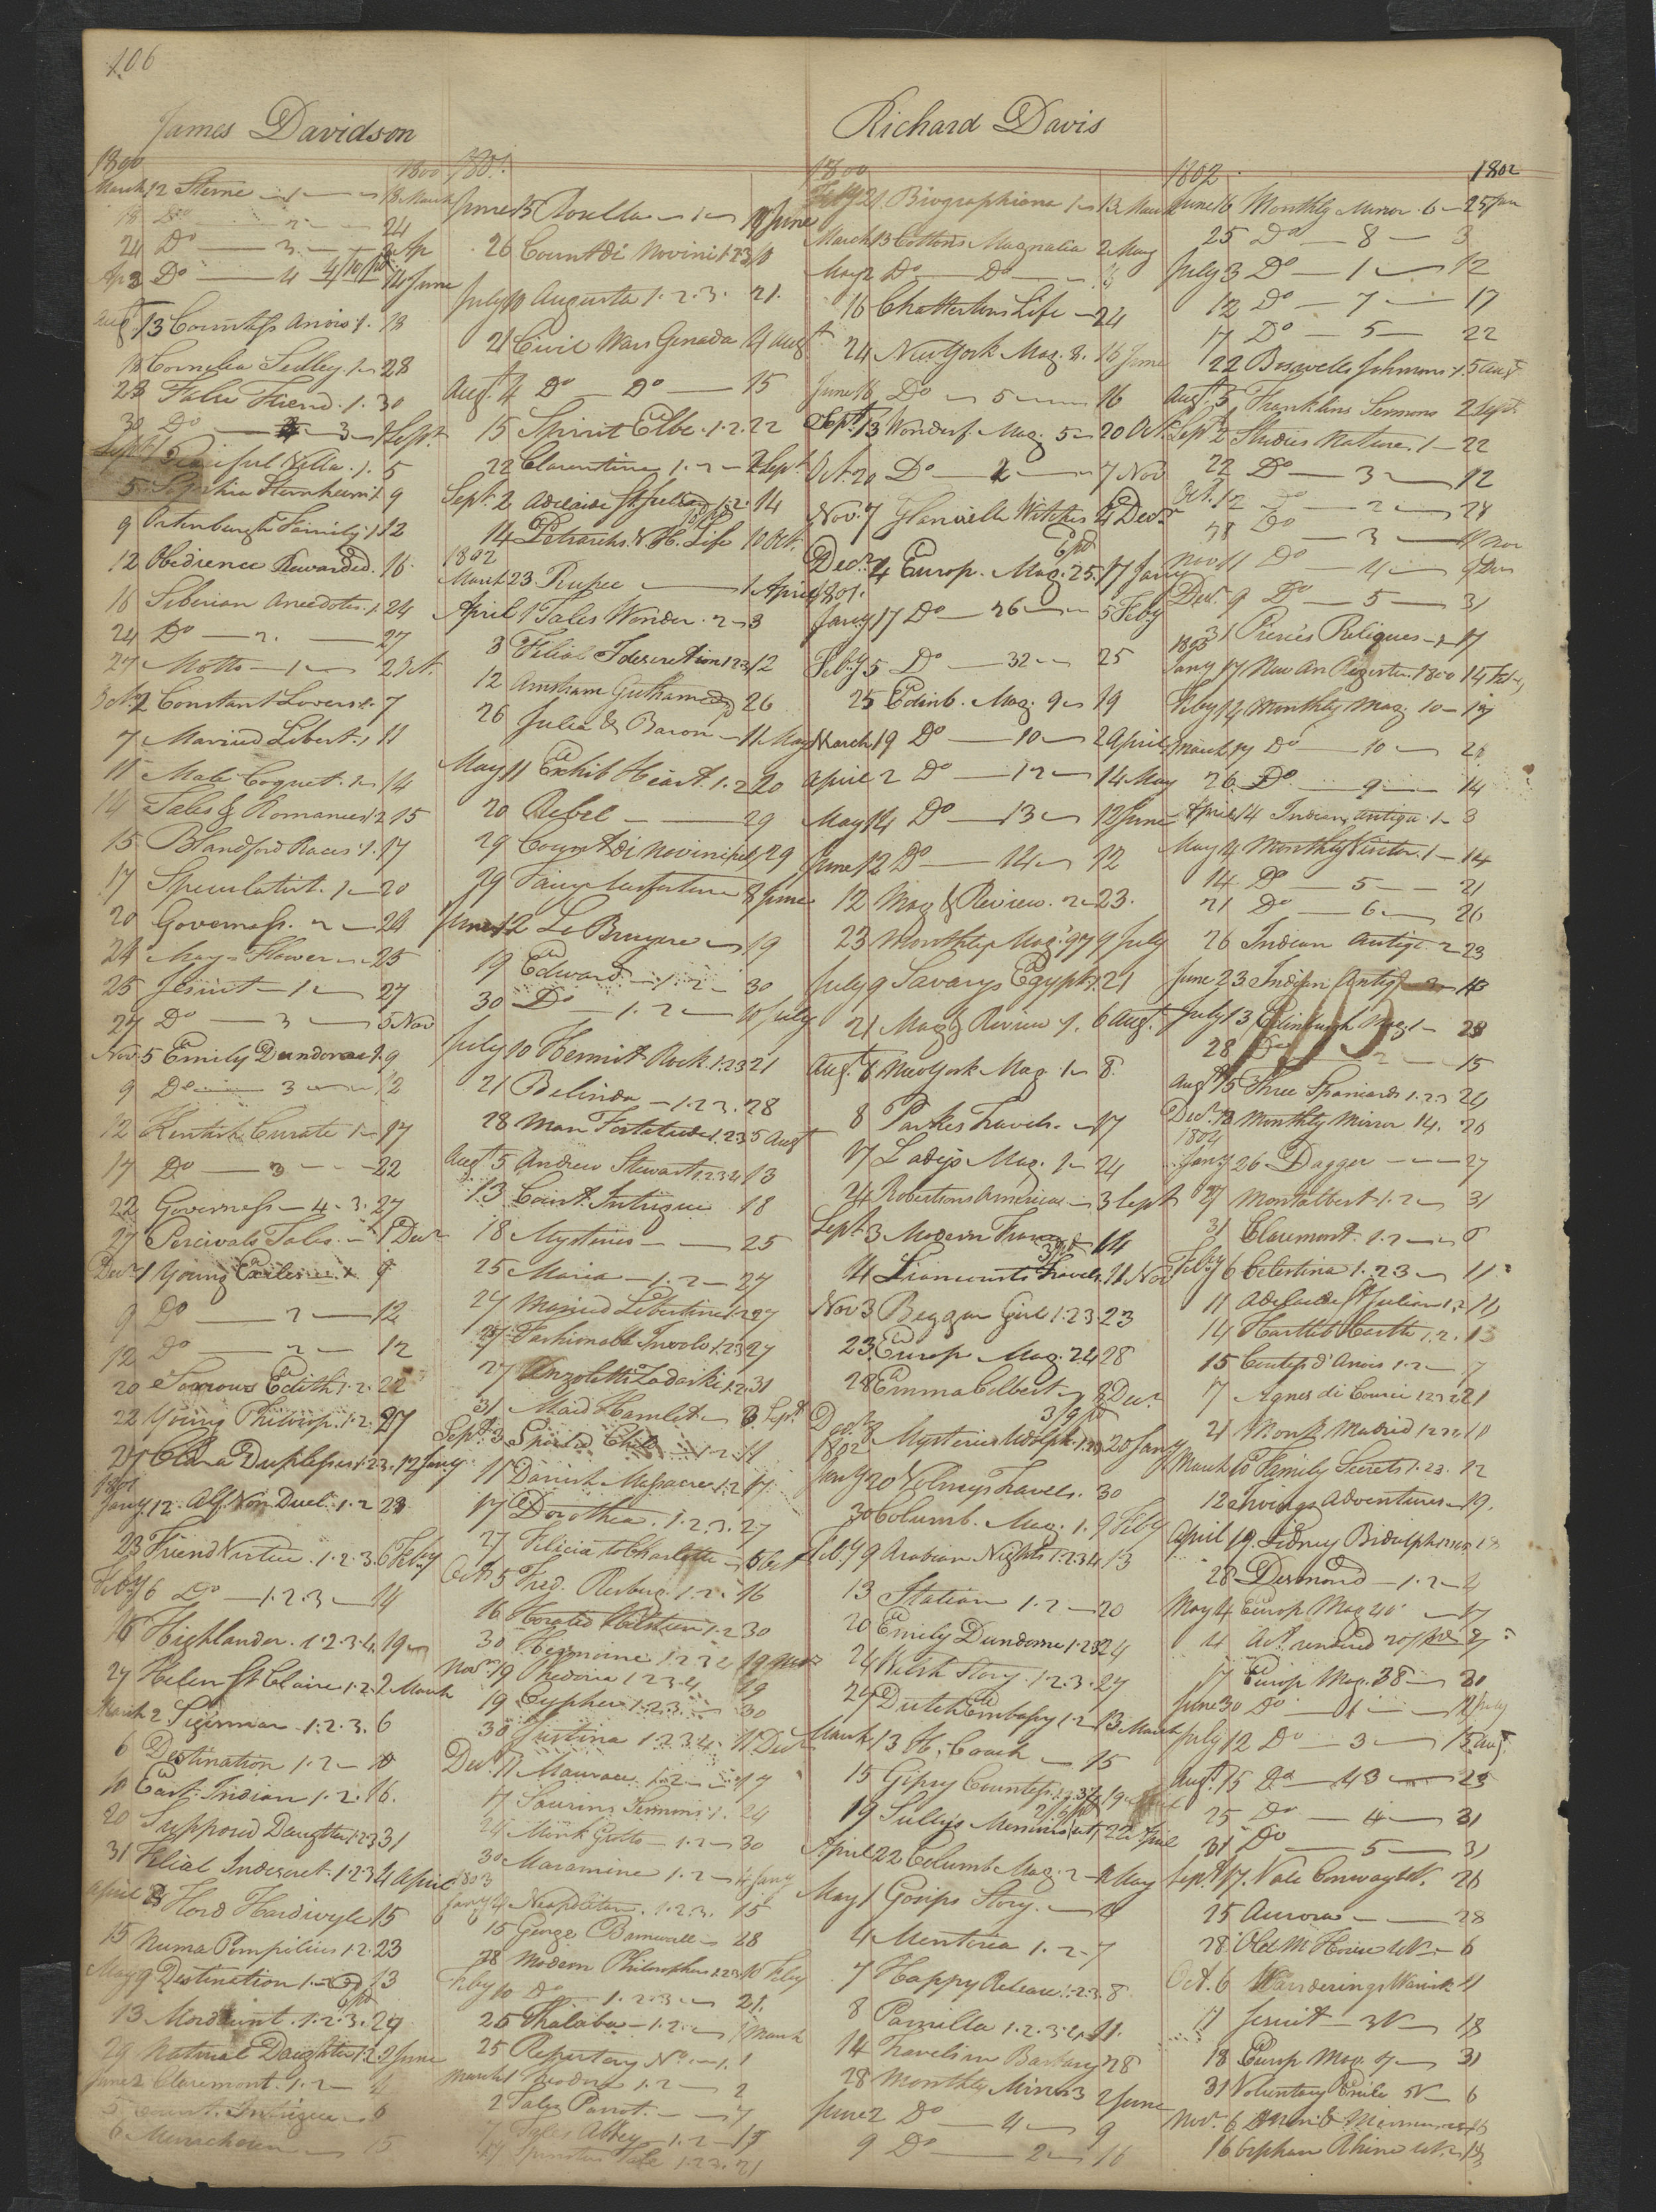 106
James Davidson
1800 1800
March 12 Sterne 1 18 March
18 Do 2 24
24 Do 3 2 Ap
Ap 2 Do 4 4/10 pd 14 June
Augt. 13 Countess Anois 1. 18
18 Cornelia Sedley. 1 28
28 False Friend. 1. 30
30 Do 3 1 Sept.
Sept 1 Villa. 1. 5
5 Sophia Sternheim 1 9
9 Ortenburgh Family 1 12
12 Obedience Rewarded. 16
16 Siberian Anecdotes. 1 24
24 Do 2. 27
27 Motto 1 2 Oct.
Oct. 2 Constant Lovers 1. 7
7 Married Libert. 1 11
11 Male Coquet. 1 14
14 Tales & Romances 1 2 15
15 Blandford Races 1. 17
17 Speculatist. 1 20
20 Governess. 2 24
24 May-Flower 25
25 Jesuit 1 27
27 Do 3 5 Nov
Nov. 5 Emily Dundorne 1. 9
9 Do 3 12
12 Kentish Curate 1 17
17 Do 3 22
22 Governess 4. 3. 27
27 Percivals Tales. 1 Decr
Decr 1 Young Exiles 9
9 Do 2 12
12 Do 2 12
20 Sorrows Edith 1. 2. 22
22 Young Philosop. 1. 2. 27
27 Clara Duplessis 1. 2 3. 12 Jany
1801
Jany 12. Alf. Von Duel. 1. 2 23
23 Friend Virtue. 1. 2. 3. 6 Feby
Feby 6 Do 1. 2. 3 14
16 Highlander. 1. 2. 3. 4. 19
27 Helen St Claire 1. 2. 2 March
March 2 Sigismar. 1. 2. 3. 6
6 Destination 1. 2 10
10 East Indian 1. 2. 16.
20 Supposed Daughter 1. 2 3 31
31 Filial Indescret. 1. 2 3 4 April
April Hord Hardivyle 15
15 Numa Pompilius 1. 2. 23
May 9 Destination 1. 13
13 Mordaunt. 1. 2. 3. 29
29 Natural Daughter 1. 2 2 June
June 2 Claremont. 1. 2 4
5 Court. Intrigue 6
6 15
1801.
June 15 Rosella 1 June
26 Count di Novini 1. 2 3
July 10 Augusta 1. 2. 3. 21.
21 Civil Wars Genada 4 Augt
Augt. 4 Do Do 15
15 Spirit Elbe. 1. 2. 22
22 Clarentine 1. 2 2 Sept
Sept. 2 Adelaide St Julian 1. 2. 14
14 Petrarchs. V H. Life 10 Oct.
1802
March 23 Rupee 1 April
April 1 Tales Wonder. 2 3
3 Filial Idescretion 1 2 3 12
12 26
26 Julia & Baron 11 May
May 11 Exhib Heart. 1. 2 20
20 Rebel 29
29 Count di Novini 29
29 Fairy 8 June
June 12 Le Bruyere 19
19 Edward 1. 2 30
30 Do 1. 2 10 July
July 10 Hermit Rock. 1. 2 3 21
21 Belinda 1. 2 3. 28
28 Man Fortitude 1. 2 3 5 Augt
Augt 5 Andrew Stewart 1 2 3 4 13
13 Court. Intrigue 18
18 Mysteries 25
25 Maria 1. 2 27
27 Married Libertine 1. 2 27
27 Fashionable Involv 1. 2 3 27
27 Anzoletta Zadaski 1. 2. 31
31 Maid Hamlet 3 Sept
Sept. 3 Spoiled Child 1. 2 11
11 Danish Massacre 1. 2 17
17 Dorothea. 1. 2. 3. 27
27 Felicia to Charlotte 5 Oct
Oct. 5 Fred. Risberg. 1. 2. 16
16 Horatio Holstein 1. 2 30
30 Hermione 1. 2 3 4 19 Nov
Novr 19 Phedora 1 2 3 4 19
19 Cypher 1. 2 3 30
30 Justina 1 2 3 4 11 Decr
Decr. 11 Maurace 1. 2 17
17 Saurins Sermons 1. 24
24 Mink Grotto 1. 2 30
30 Maramine 1. 2 4 Jany
1803
Jany 4 Neapolitan. 1. 2. 3. 15
15 George Barnwell 28
28 Modern Philosophers 1. 2 3 10 Feby
Feby 10 Do 1. 2. 3 21.
25 Thalaba 1. 2. 1 March
25 Repertory No 1. 1
March 1 1. 2 2
2 Tales Parrot. 7
7 Abbey 1. 2 17
17 Spinsters Tale 1. 2 3. 21
Richard Davis
1800
Feby 21 Biographiana 1 13 March
March 13 Cottons Magnalia 2 May
May 2 Do Do
16 Chattertons Life 24
24 New York Mag. 8. 16 June
June 16 Do 5 16
Sept. 13 Wonderf. Mag. 5 20 Oct.
Oct. 20 Do 2 7 Nov
Nov. 7 Glanville Witches 4 Decr
Decr 4 Europ. Mag. 25. 17 Jany
1801.
Jany 17 Do 26 5 Feby
Feby 5 Do 32 25
25 Edinb. Mag. 9 19
March 19 Do 10 2 April
April 2 Do 12 14 May
May 14 Do 13 12 June
June 12 Do 14 12
12 Mag & Review. 2 23.
23 Monthly Mag. 97 9 July
July 9 Savarys Egypt 1. 21
21 Mag & Review 1. 6 Augt.
Augt. 6 New York Mag 1 8.
8 Parkes Travels. 17
17 Ladys Mag. 1 24
24 Robertsons America 3 Sept
Sept. 3 Modern France 14
14 Liancourts Travels. 11 Nov
Nov 3 Beggar Girl 1. 2 3 23
23 Europ. Mag. 24 28
28 Emma Colbert 8 Decr
Decr 8 Mysteries Udolph. 1. 2 3 20 Jany
1802
Jany 20 Volneys Travels. 30
30 Columb. Mag. 1. 9 Feby
Feby 9 Arabian Nights 1. 2 3 4 13
13 Station 1. 2 20
20 Emily Dundorne 1. 2 3 24
24 Welsh Story. 1. 2. 3. 27
27 Dutch Embassy 1. 2 13 March
March 13 H. Coach 15
15 Gipsy Countess 1. 2. 3. 4 19
19 Sullys Memoirs 22 April
April 22 Columb. Mag. 2 1 May
May 1 Gosips Story. 4
4 Mentoria 1. 2. 7
7 Happy Release 1. 2. 3. 8
8 Pamilla 1. 2. 3. 4. 11.
14 Travels in Barbary 28
28 Monthly Mirror 3 2 June
June 2 Do 4 9
9 Do 2 16
1802. 1802
June 16 Monthly Mirror. 6 25 Jun
25 Do 8 3
July 3 Do 1 12
12 Do 7 17
17 Do 5 22
22 Boswells Johnson 1. 5 Augt
Augt. 5 Franklins Sermons 2 Sept.
Sept 2 Studies Nature. 1 22
22 Do 3 12
Oct. 12 Do 2 28
28 Do 3 11 Nov
Nov 11 Do 4 9 Decr
Decr. 9 Do 5 31
31 Reliques 1 17
1803
Jany 17 New An Register. 1800 14 Feby
Feby 14 Monthly Mag. 10 17
March 17 Do 10 26
26 Do 9 14
April 14 Indian Antiqu. 1 3
May 4 Monthly Visitor. 1 14
14 Do 5 21
21 Do 6 26
26 Indian Antiq. 2 23
June 23 Indian Antiq 13
July 13 Edinburgh Mag. 1 28
28 Do 2 15
Augt 15 Three Spaniards 1. 2 3 24
Decr. 13 Monthly Mirror 14. 26
1804
Jany 26 Dagger 27
27 Montalbert 1. 2 31
31 Claremont 1. 2 6
Feby 6 Celestina 1. 2 3 11
11 Adelaide St Julian 1. 2 16
14 1. 2. 15
15 Contess d'Anois 1. 2 17
17 Agnes di Courci 1 2 3 21
21 Monk Madrid 1 2 3 10
March 10 Family Secrets 1. 2 3. 12
12 Irvings Adventures 19.
April 19. Sidney Bidulph 28
28 Desmond 1. 2 4
May 4 Europ. Mag 40 17
4 Act renewed 20/ pd
17 Europ Mag. 38 30
June 30 Do 12 July
July 12 Do 3 15 Augt.
Augt. 15 Do 43 25
25 Do 4 31
31 Do 5 31
Sept 17. Vale Conway 26
25 Aurora 28
28 Old M. House 6
Oct. 6 Wanderings Warwick 11
11 Jesuit 3 18
18 Europ Mag. 7 31
31 Voluntary Exile 5 6
Novr. 6 16
16 Orphan Rhine 18